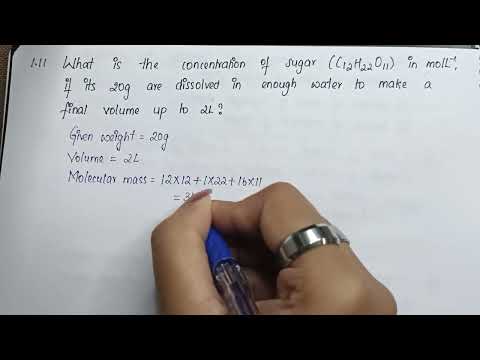 1.11 What is the concentration of sugar (C12H22O11) in molL-1,
if its 20g are dissolved in enough water to make a
final volume up to 2L?
Given weight = 20g
Volume = 2L
Molecular mass = 12x12 + 1x22 + 16x11
= 3